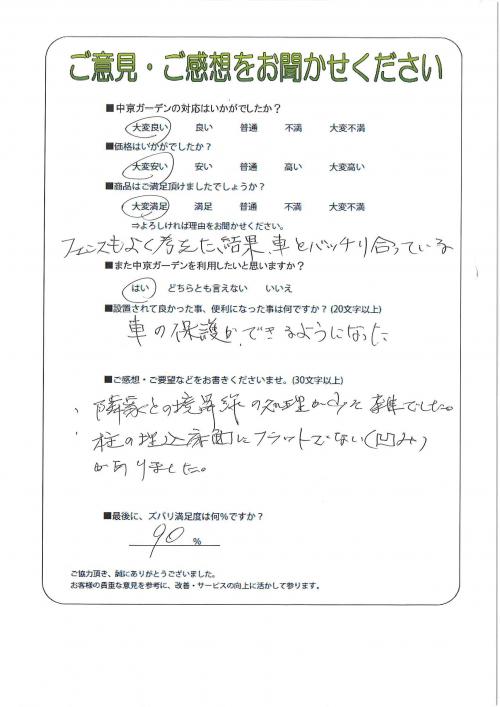 ご意見・ご感想をお聞かせください
■中京ガーデンの対応はいかがでしたか？
大変良い 良い 普通 不満 大変不満
■価格はいかがでしたか？
大変安い 安い 普通 高い 大変高い
■商品はご満足頂けましたでしょうか？
大変満足 満足 普通 不満 大変不満
⇒よろしければ理由をお聞かせください。
フェンスもよく考えた、結果、車とバッチリ合っている
■また中京ガーデンを利用したいと思いますか？
はい どちらとも言えない いいえ
■設置されて良かった事、便利になった事は何ですか？(20文字以上)
車の保護ができるようになった
■ご感想・ご要望などをお書きくださいませ。(30文字以上)
、隣家との境界線の処理が 雑でした。
、柱の埋込床面にフラットでない(凹み)
がありました。
■最後に、ズバリ満足度は何%ですか？
90 %
ご協力頂き、誠にありがとうございました。
お客様の貴重な意見を参考に、改善・サービスの向上に活かして参ります。